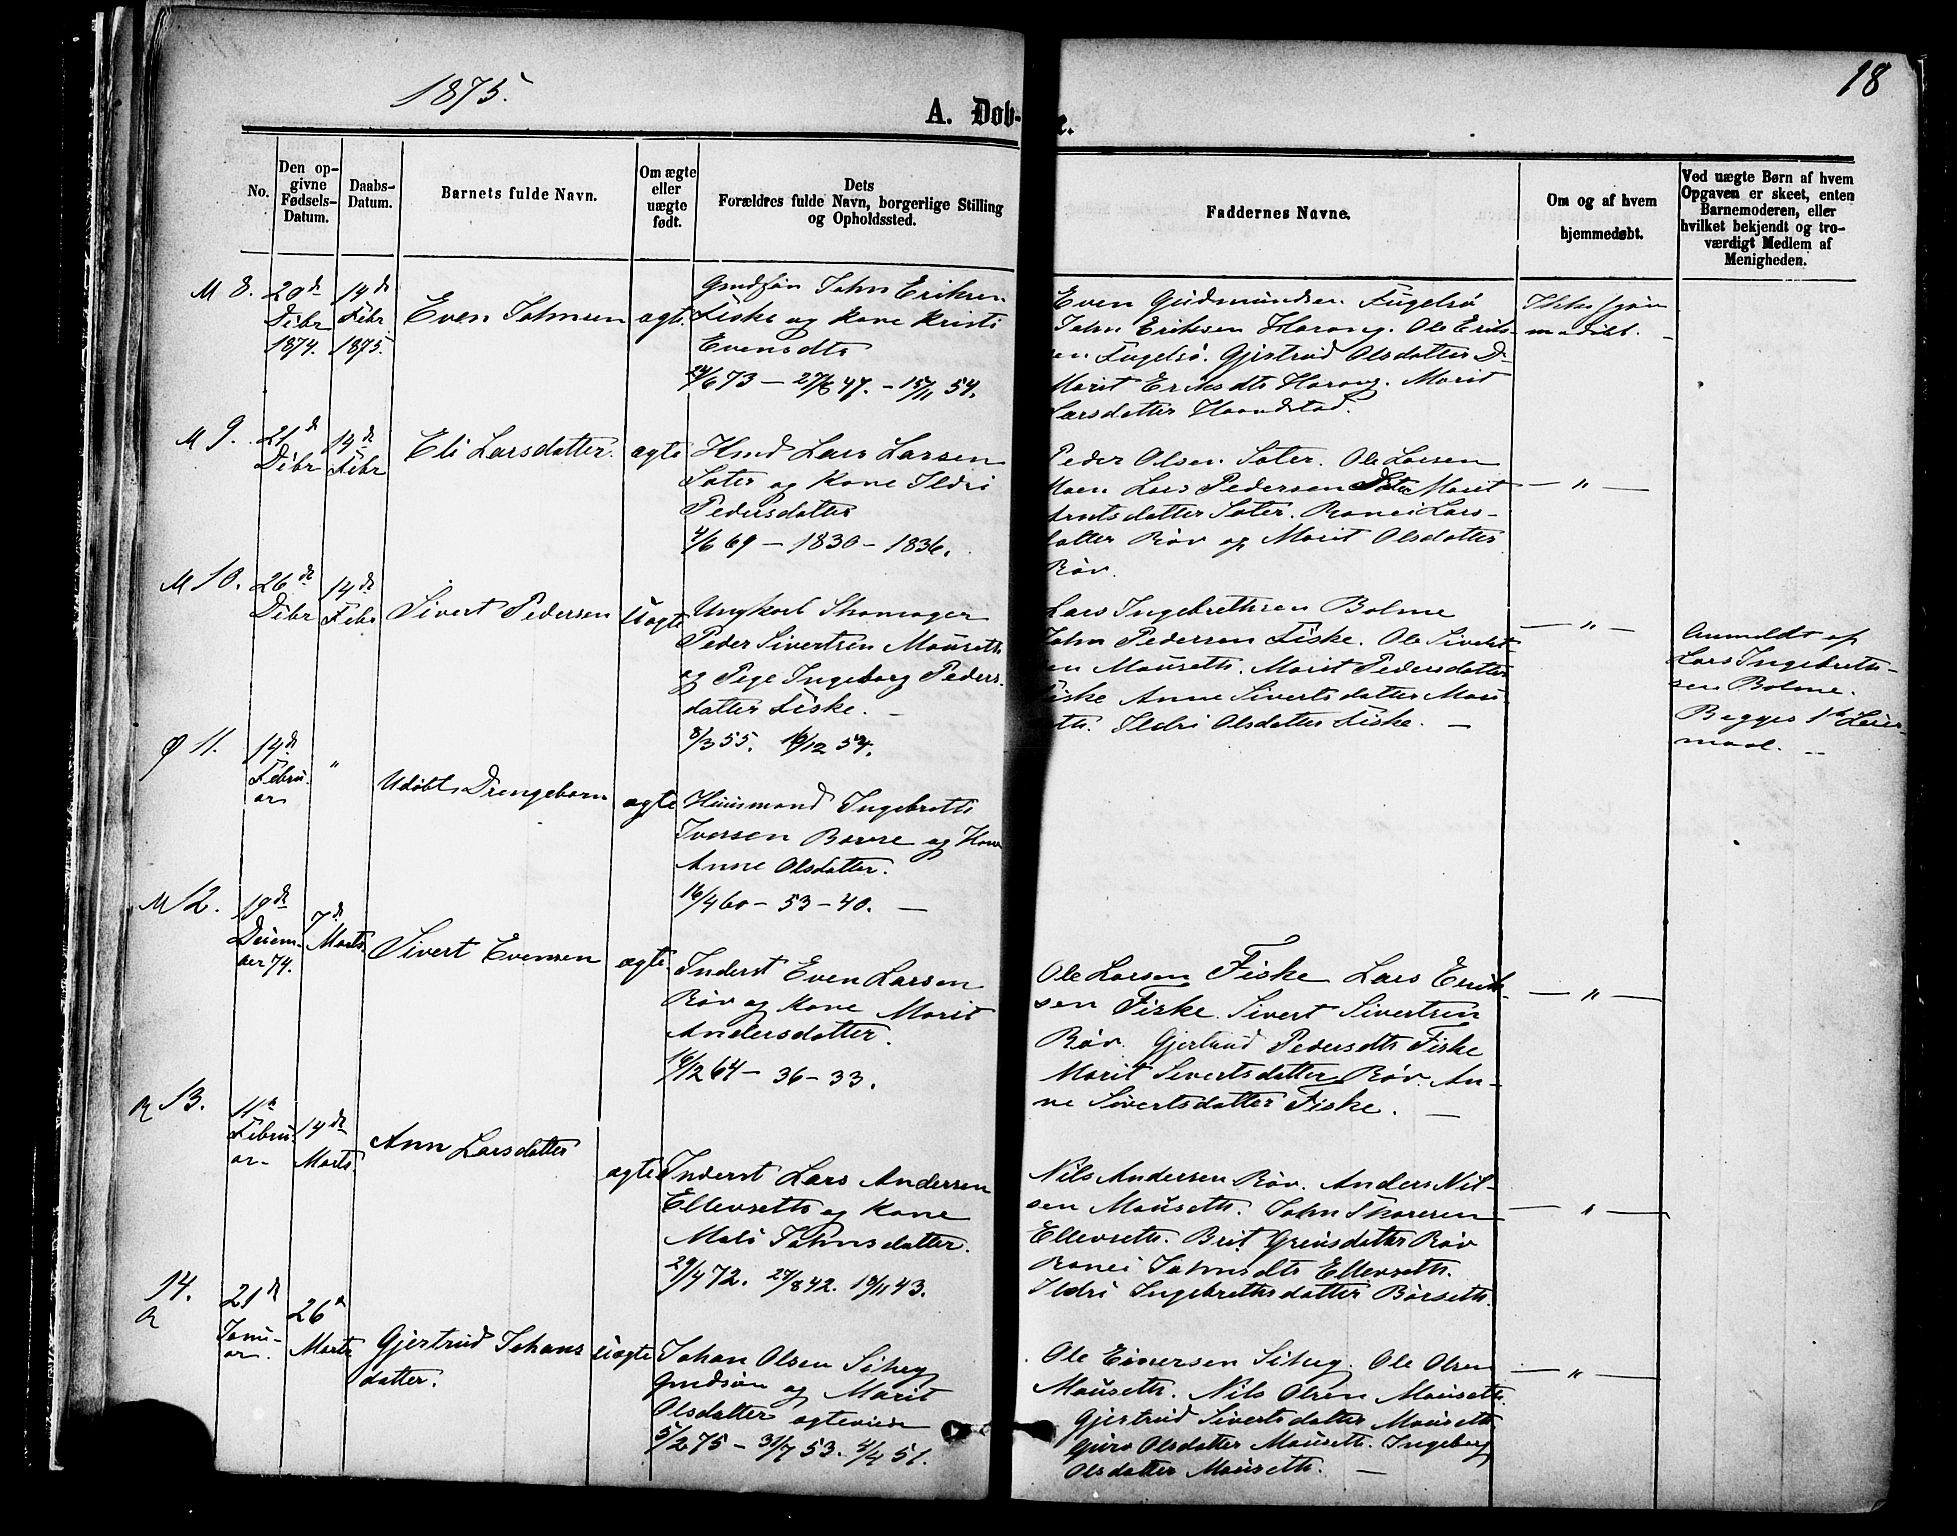 1875.
18
A. Døb-
e.
No.
Den op-
givne
Fødsels-
Datum.
Daabs-
Datum.
Barnets fulde Navn.
Om ægte
eller
uægte
født.
Dets
Forældres fulde Navn, borgerlige Stilling
og Opholdssted.
Faddernes Navne.
Om og af hvem
hjemmedøbt.
Ved uægte Børn af hvem
Opgaven er skeet, enten
Barnemoderen, eller
hvilket bekjendt og tro-
værdigt Medlem af
Menigheden.
M 8.
20de
Dcbr
1874.
14de
Febr
1875.
Even Johnsen
ægt.
John Eriksen
Fiske og Kone Kristi
Evensdtr
27/6 47. – 15/11 54.
Even Gudmundsen Fugelsø
John Eriksen Harang. Ole Erik-
sen Fugelsø. Gjertrud Olsdatter D–
Marit Eriksdtr Harang. Marit
Larsdatter Haandstad.
M 9.
21de
Decbr
14de
Febr
Eli Larsdatter.
ægte
Hmd Lars Larsen
Sater og Kone Ildri
Pedersdatter
4/6 69 – 1830 – 1836.
Peder Olsen Sater. Ole Larsen
Moen Lars Pedersen Sater Marit
Arntsdatter Sater. Ranei Lars-
datter Røv og Marit Olsdatter
Røv.
– " –
M 10.
26de
Decbr
14de
Febr
Sivert Pedersen
Uægte
Ungkarl Skomager
Peder Sivertsen Mauseth
og Pige Ingeborg Peders-
datter Fiske. –
8/3 55. 16/12 54.
Lars Ingebrethsen Bolme
John Pedersen Fiske. Ole Sivert-
sen Mauseth. Marit Pedersdatter
Fiske Anne Sivertsdatter Mau-
seth. Ildri Olsdatter Fiske. –
– " –
Anmeldt af
Lars Ingebreth-
sen Bolme.
Begges 1ste Leier-
maal. –
Ø 11.
14de
Febru-
ar
"
Udøbt Drengebarn
ægte
Huusmand Ingebrett
Iversen Bævre og Kone
Anne Olsdatter.
16/4 60 – 53 – 40. –
M 12.
19de
Decem-
ber 74.
7de
Marts
Sivert Evensen
ægte
Inderst Even Larsen
Røv og Kone Marit
Andersdatter.
16/12 64 – 36 – 33.
Ole Larsen Fiske Lars Erik-
sen Fiske. Sivert Sivertsen
Røv. Gjertrud Pedersdtr Fiske
Marit Sivertsdatter Røv. An-
ne Sivertsdatter Fiske. –
– " –
R 13.
11te
Febru-
ar
14de
Marts
Ann Larsdatter
ægte
Inderst Lars Andersen
Ellevseth og Kone
Mali Johnsdatter.
29/4 72. 27/8 42. 19/11 43.
Nils Andersen Røv. Anders Nil-
sen Mauseth. John Skaresen
Ellevseth. Brit Greisdatter Røv
Ranei Johnsdtr Ellevseth.
Ildri Ingebrethsdatter Bærseth.
– " –
14.
R
21de
Janu-
ar.
26de
Marts
Gjertrud Johans
datter.
Uægte
Johan Olsen Sihey
Gmdsøn og Marit
Olsdatter ægteviede
5/2 75 – 31/7 53. 4/4 51.
Ole Einersen Sihey. Ole Olsen
Mauseth. Nils Olsen Mauseth
Gjertrud Sivertsdatter Mauseth
Guro Olsdatter Mauseth. Ingeborg
Olsdatter Mauseth. –
– " –